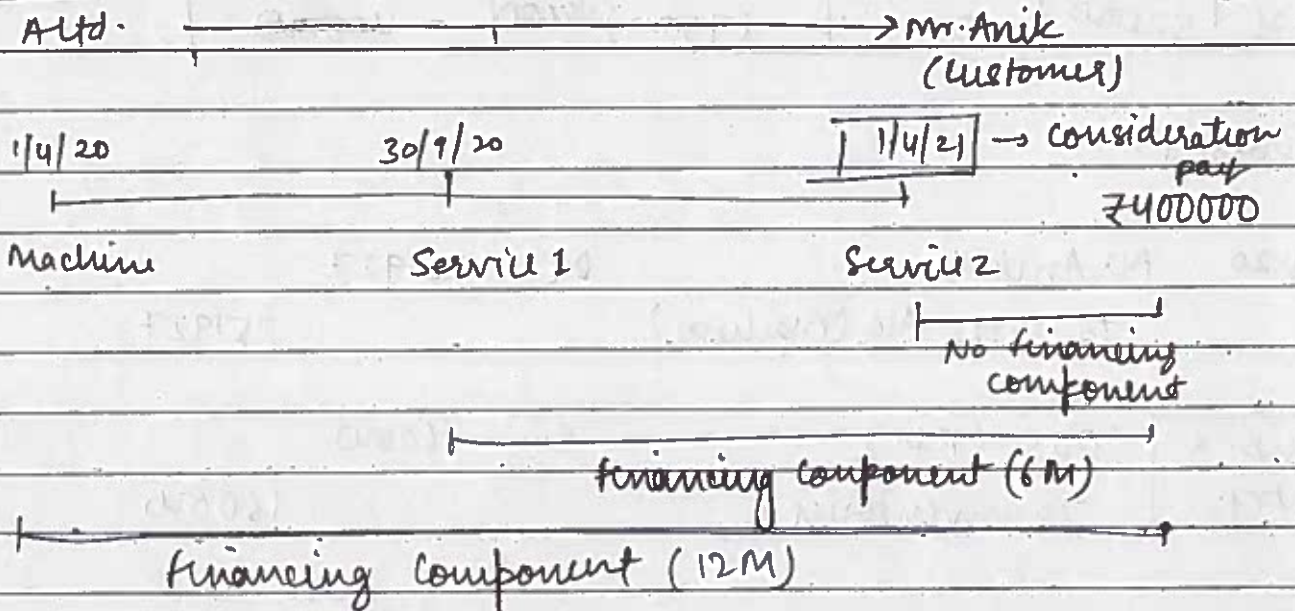 A Ltd. → Mr. Anik
(Customer)
1/4/20 30/9/20 1/4/21 → consideration
pay
₹400000
Machine Service 1 Service 2
No financing
component
financing component (6M)
financing component (12M)